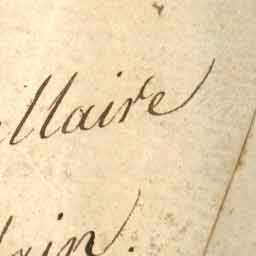 llaire
ain.